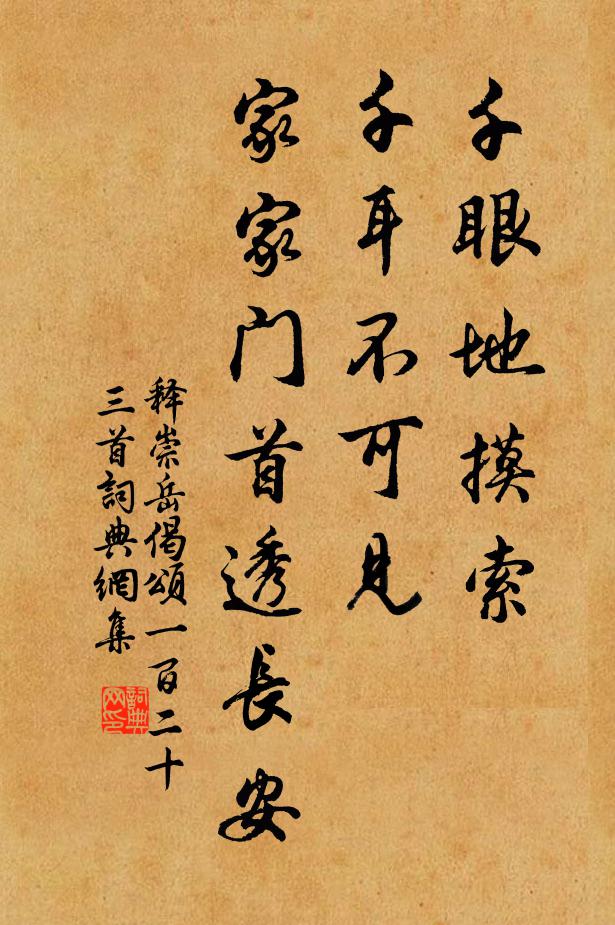 千眼地摸索
千耳不可見
家家门首透長安
释崇岳偈頌一百二十
三首詞典網集
詞典
网印